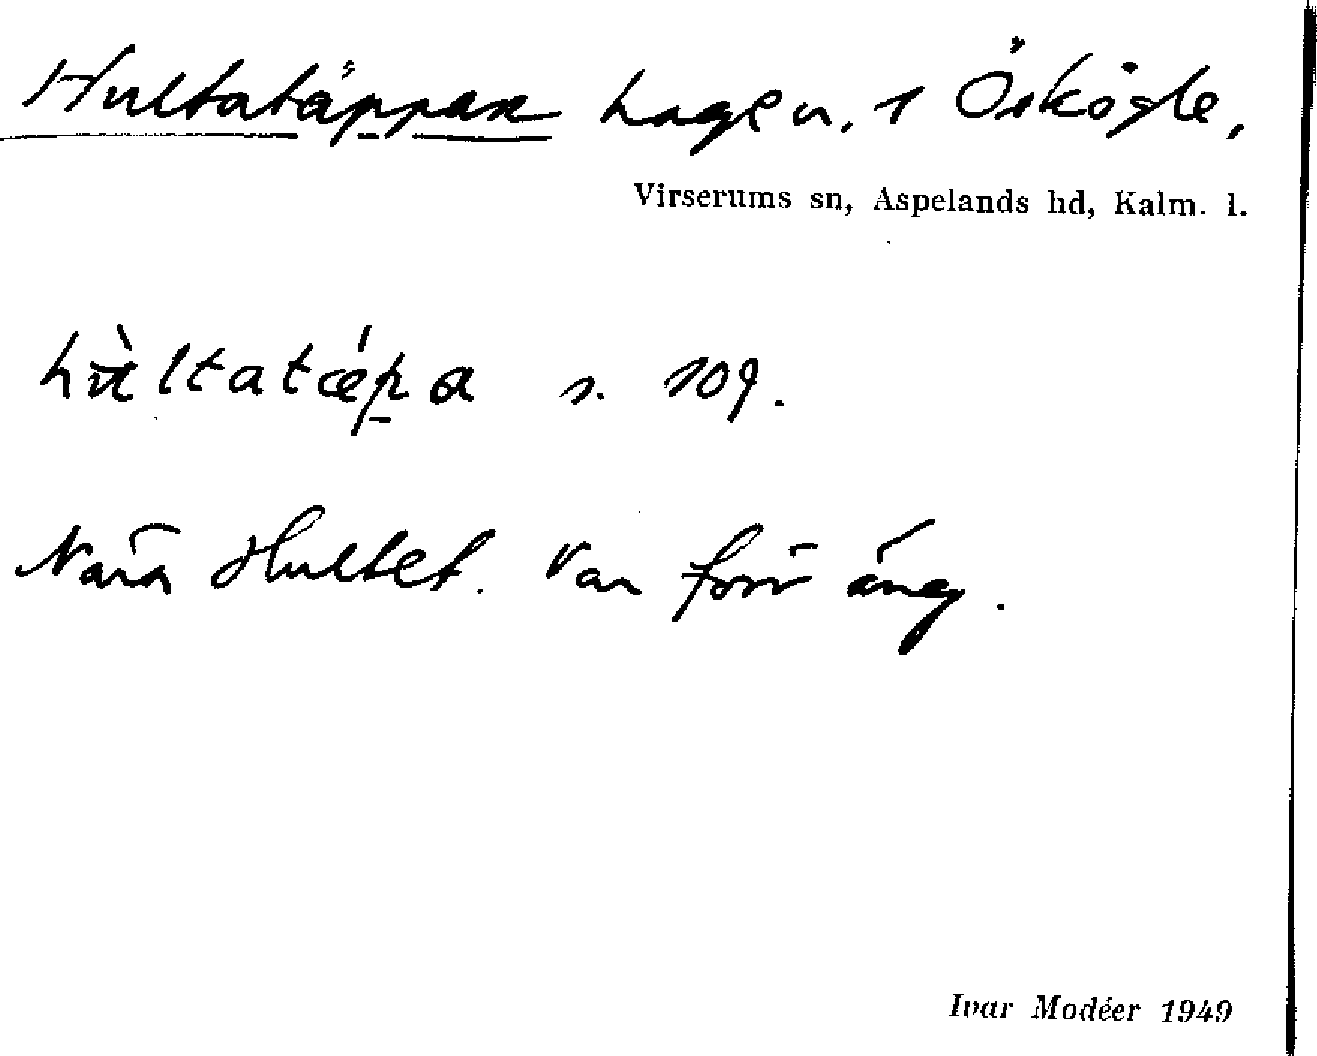 Hultatäppan hagen, 1 Öskögle,
Virserums sn, Aspelands hd, Kalm. l.
s. 109.
Nära Hultet. Var förr äng.
Ivar Modéer 1949